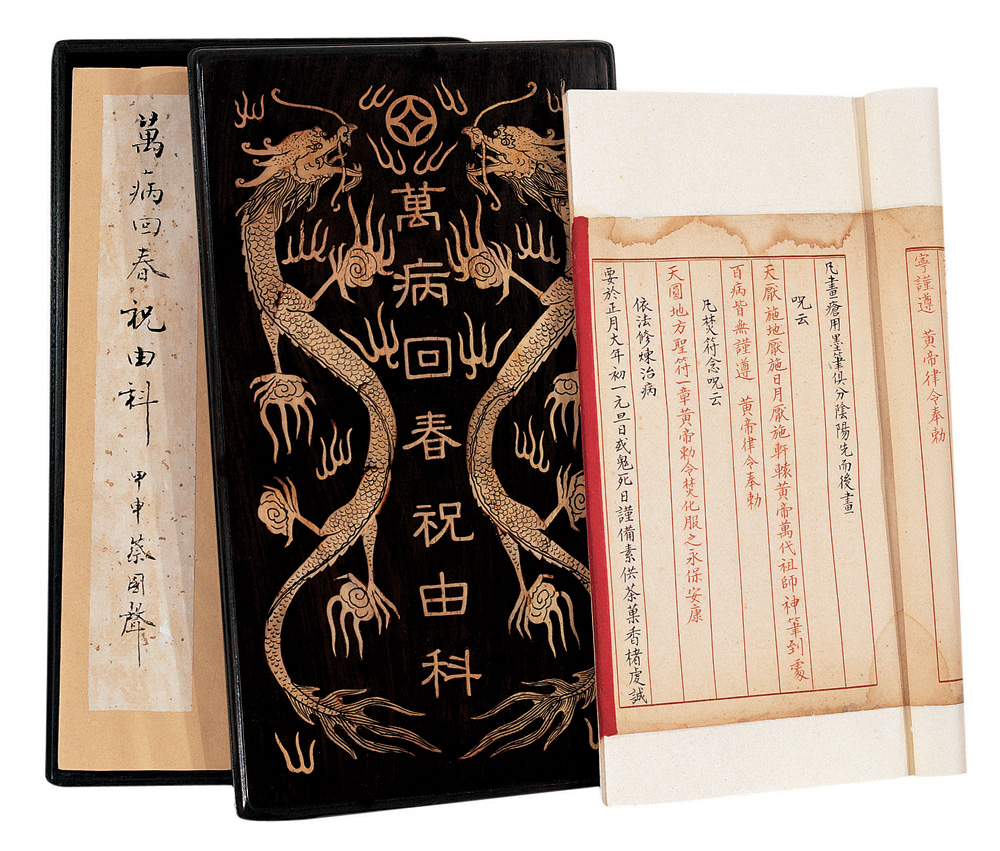 萬病回春祝由科 甲申 蔡國聲
萬病回春祝由科
寧謹遵 黃帝律令奉勅
凡畫瘡用墨筆俱分陰陽先而後畫
呪云
天厭施地厭施日月厭施軒轅黃帝萬代祖師神筆到處
百病皆無謹遵 黃帝律令奉勅
凡焚符念呪云
天圓地方聖符一章黃帝勅令焚化服之永保安康
依法修煉治病
要於正月大年初一元旦日或鬼死日謹備素供茶菓香楮虔誠